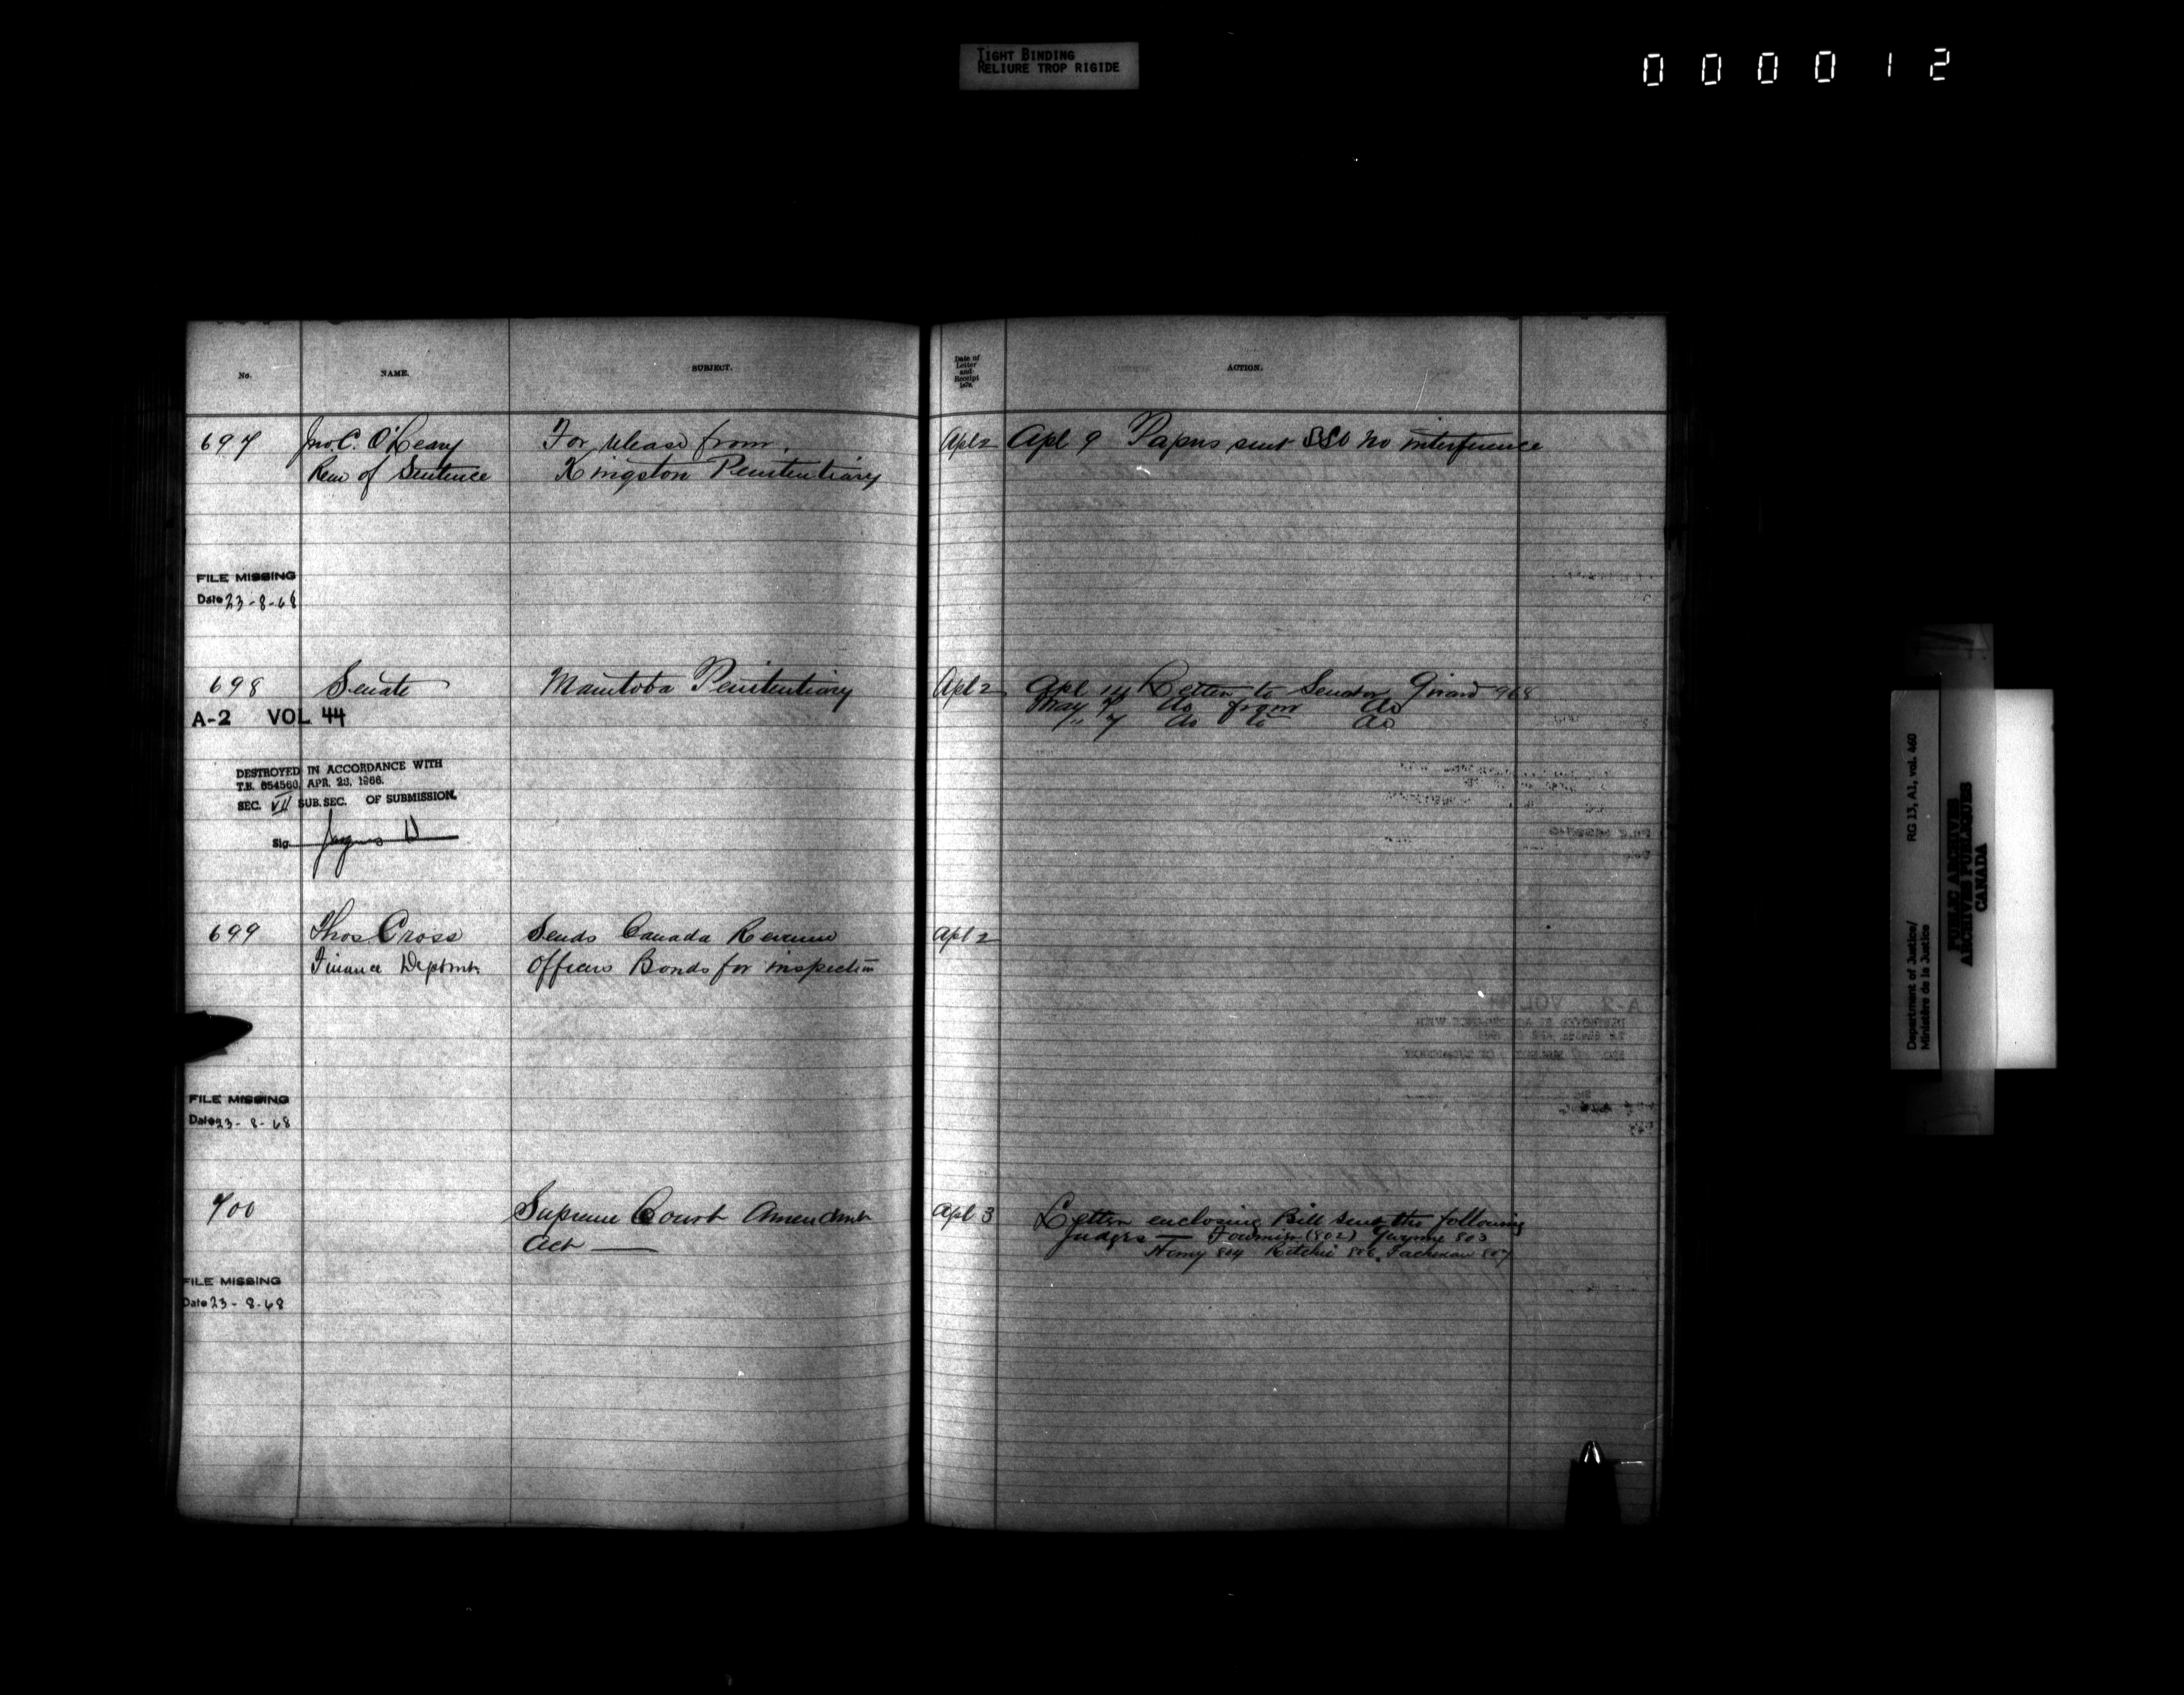 TIGHT BINDING
RELIURE TROP RIGIDE
000012
No.
NAME.
SUBJECT.
Date of
Letter
and
Receipt
187
ACTION.
697 Jno. C. O'Leary For release from Apl 2 Apl 9 Papers sent SSO no interference
Rem of Sentence Kingston Penitentiary
FILE MISSING
Date 23-8-68
698 Senate Manitoba Penitentiary Apl 2 Apl 14 Letter to Senator Girard 968
A-2 VOL 44 May 7 do from do
" 7 do to do
DESTROYED IN ACCORDANCE WITH
T.B. 654560, APR. 28, 1966.
SEC. VII SUB.SEC. OF SUBMISSION.
Sig.
699 Thos Cross Sends Canada Revenue Apl 2
Finance Deptmt Officers Bonds for inspection
FILE MISSING
Date 23-8-68
700 Supreme Court Amendmt Apl 3 Letter enclosing Bill sent the following
Act — Judges — Fournier (802) Gwynne 803
Henry 804 Ritchie 806. Tachereau 807
FILE MISSING
Date 23-8-68
Department of Justice/ RG 13, A1, vol. 460
Ministère de la Justice
PUBLIC ARCHIVES
ARCHIVES PUBLIQUES
CANADA